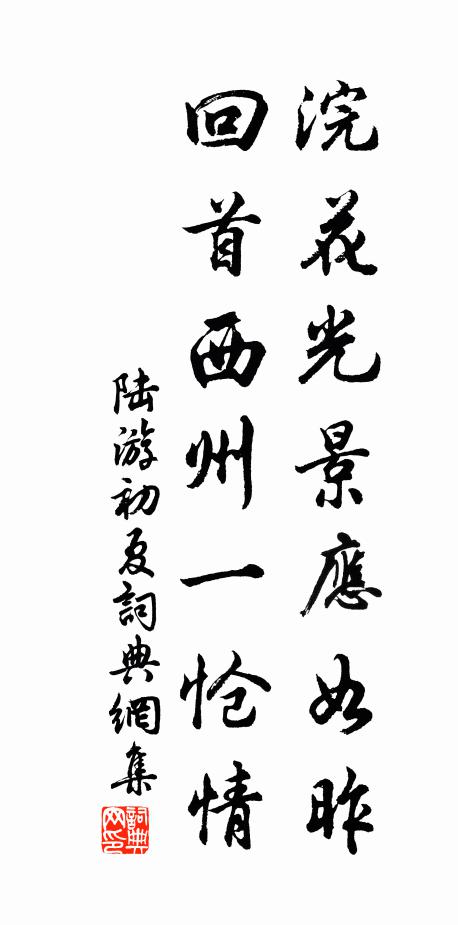 浣花光景應如昨
回首西州一怆情
陆游初夏詞典網集
詞典网印